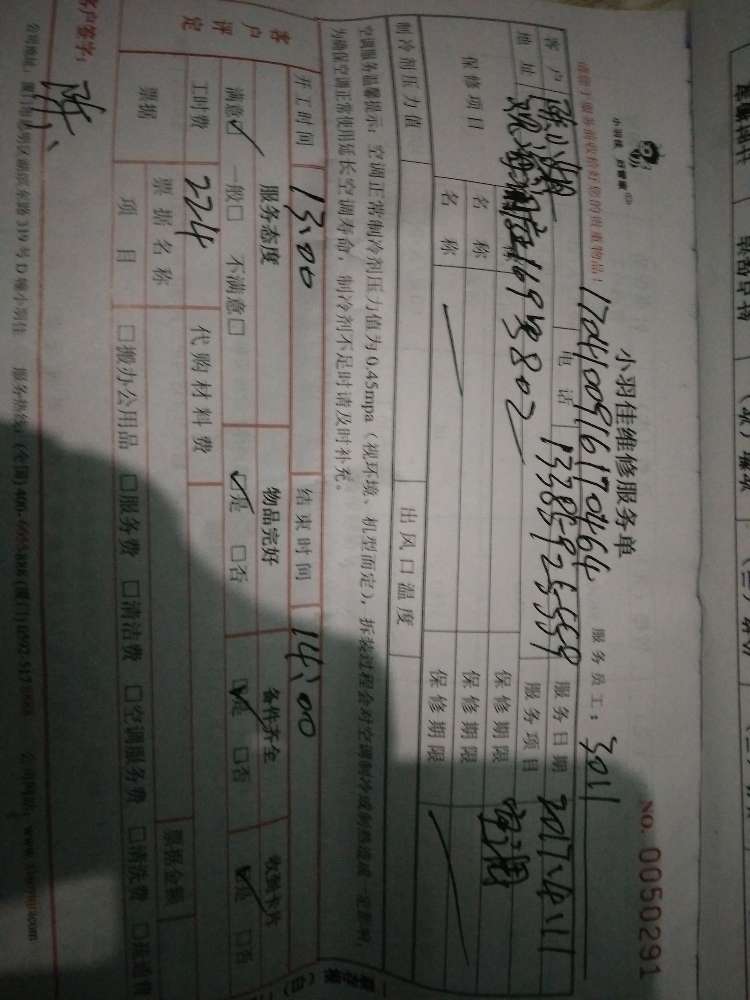 小羽佳维修服务单
NO. 0050291
小羽佳，好管家
请您于服务前收拾好您的贵重物品！
17044009161170464
服务员工：3011
客户
电话 13385925559
服务日期 2017.4.11
地址
169号802
服务项目 空调
保修项目
名称
保修期限
名称
保修期限
名称
保修期限
制冷剂压力值
出风口温度
空调服务温馨提示：空调正常制冷剂压力值为0.45mpa（视环境、机型而定），拆装过程会对空调制冷或制热造成一定影响，
为确保空调正常使用延长空调寿命，制冷剂不足时请及时补充。
开工时间 13:00 结束时间 14:00
客户评定
服务态度 物品完好 备件齐全 收到卡片
满意☑ 一般□ 不满意□ ☑是 □否 ☑是 □否 ☑是 □否
工时费 224 代购材料费
票据
票据名称
票据金额
项目 □搬办公用品 □服务费 □清洁费 □空调服务费 □清洗费
客户签字：
319号D幢小羽佳